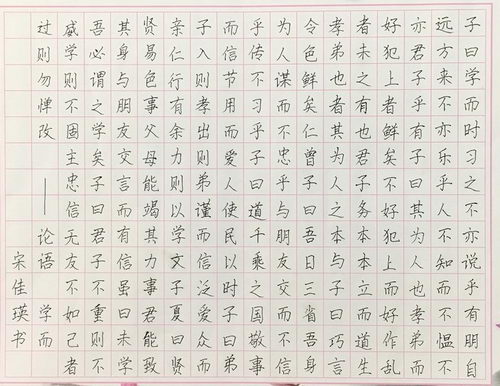 子曰学而时习之不亦说乎有朋自
远方来不亦乐乎人不知而不愠不
亦君子乎有子曰其为人也孝弟而
好犯上者鲜矣不好犯上而好作乱
者未之有也君子务本本立而道生
孝弟也者其为人之本与子曰巧言
令色鲜矣仁曾子曰吾日三省吾身
为人谋而不忠乎与朋友交而不信
乎传不习乎子曰道千乘之国敬事
而信节用而爱人使民以时子曰弟
子入则孝出则弟谨而信泛爱众而
亲仁行有余力则以学文子夏曰贤
贤易色事父母能竭其力事君能致
其身与朋友交言而有信虽曰未学
吾必谓之学矣子曰君子不重则不
威学则不固主忠信无友不如己者
过则勿惮改——论语 学而
宋佳瑛书